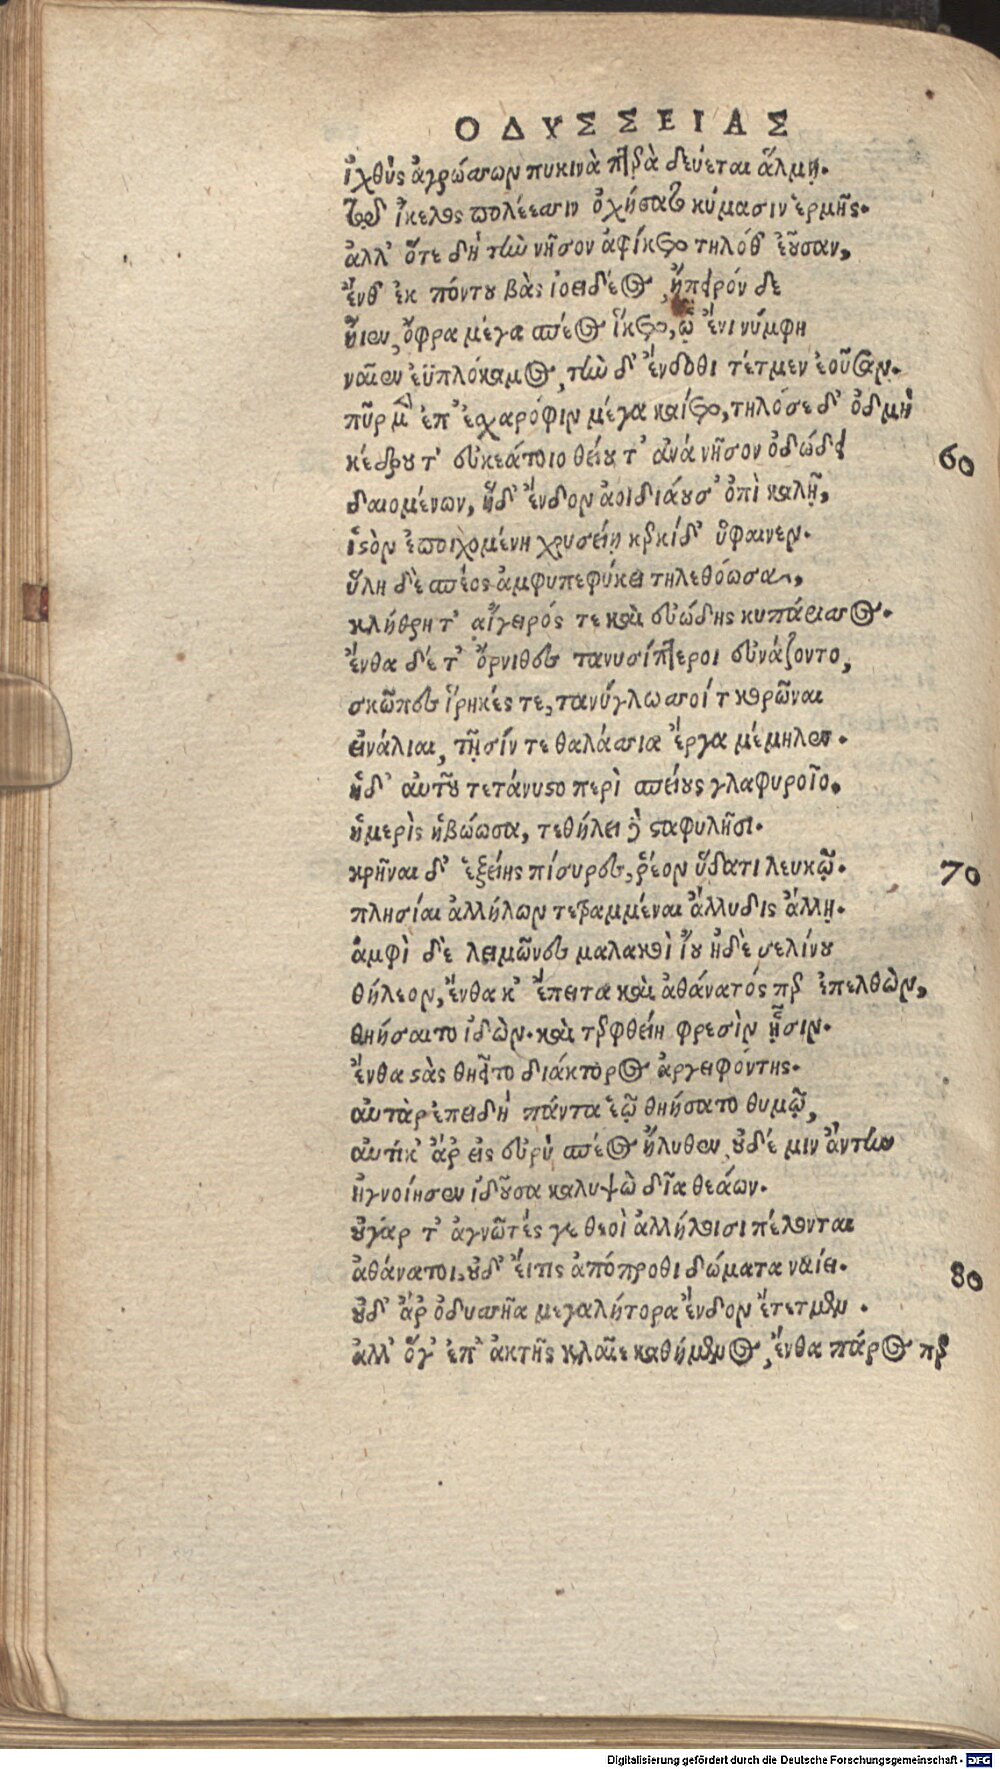 ΟΔΥΣΣΕΙΑΣ
ἰχθῦς ἀγρώσσων πυκινὰ πτερὰ δεύεται ἅλμῃ.
τῷ δ' ἴκελος πολέεσσιν ὀχήσατο κύμασιν ἑρμῆς.
ἀλλ' ὅτε δὴ τὴν νῆσον ἀφίκετο τηλόθ' ἐοῦσαν,
ἔνθ' ἐκ πόντου βὰς ἰοειδέος, ἤπειρόν δε
ἤιεν, ὄφρα μέγα σπέος ἵκετο, ᾧ ἔνι νύμφη
ναῖεν ἐϋπλόκαμος, τὴν δ' ἔνδοθι τέτμεν ἐοῦσαν.
πῦρ μὲν ἐπ' ἐσχαρόφιν μέγα καίετο, τηλόσε δ' ὀδμὴ
κέδρου τ' εὐκεάτοιο θείου τ' ἀνὰ νῆσον ὀδώδει
60
δαιομένων, ἥδ' ἔνδον ἀοιδιάουσ' ὀπὶ καλῇ,
ἱστὸν ἐποιχομένη χρυσείῃ κερκίδ' ὕφαινεν.
ὕλη δὲ σπέος ἀμφυπεφύκει τηλεθόωσα,
κλήθρη τ' αἴγειρός τε καὶ εὐώδης κυπάρισσος.
ἔνθα δέ τ' ὄρνιθες τανυσίπτεροι εὐνάζοντο,
σκῶπες ἴρηκές τε, τανύγλωσσοί τε κορῶναι
εἰνάλιαι, τῇσίν τε θαλάσσια ἔργα μέμηλεν.
ἡδ' αὐτοῦ τετάνυστο περὶ σπείους γλαφυροῖο.
ἡμερὶς ἡβώωσα, τεθήλει δὲ σταφυλῇσι.
κρῆναι δ' ἑξείης πίσυρες, ῥέον ὕδατι λευκῷ.
70
πλησίαι ἀλλήλων τετραμμέναι ἄλλυδις ἄλλη.
ἀμφὶ δὲ λειμῶνες μαλακοὶ ἴου ἠδὲ σελίνου
θήλεον, ἔνθα κ' ἔπειτα καὶ ἀθάνατός περ ἐπελθὼν,
θηήσαιτο ἰδὼν. καὶ τερφθείη φρεσὶν ᾗσιν.
ἔνθα στὰς θηεῖτο διάκτορος ἀργειφόντης.
αὐτὰρ ἐπειδὴ πάντα ἑῷ θηήσατο θυμῷ,
αὐτίκ' ἄρ εἰς εὐρὺ σπέος ἤλυθεν, οὐδέ μιν ἄντην
ἠγνοίησεν ἰδοῦσα καλυψὼ δῖα θεάων.
οὐγάρ τ' ἀγνῶτές γε θεοὶ ἀλλήλοισι πέλονται
ἀθάνατοι, οὐδ' εἴτις ἀπόπροθι δώματα ναίει.
80
οὐδ' ἄρ ὀδυσσῆα μεγαλήτορα ἔνδον ἔτετμεν.
ἀλλ' ὅγ' ἐπ' ἀκτῆς κλαῖε καθήμενος, ἔνθα πάρος περ
Digitalisierung gefördert durch die Deutsche Forschungsgemeinschaft - DFG